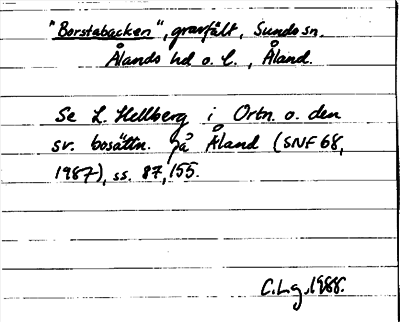 "Borstabacken", gravfält, Sunds sn.
Ålands hd o. l., Åland.
Se L. Hellberg i Ortn. o. den
sv. bosättn. på Åland (SNF 68,
1987), ss. 87, 155.
C.Lg. 1988.